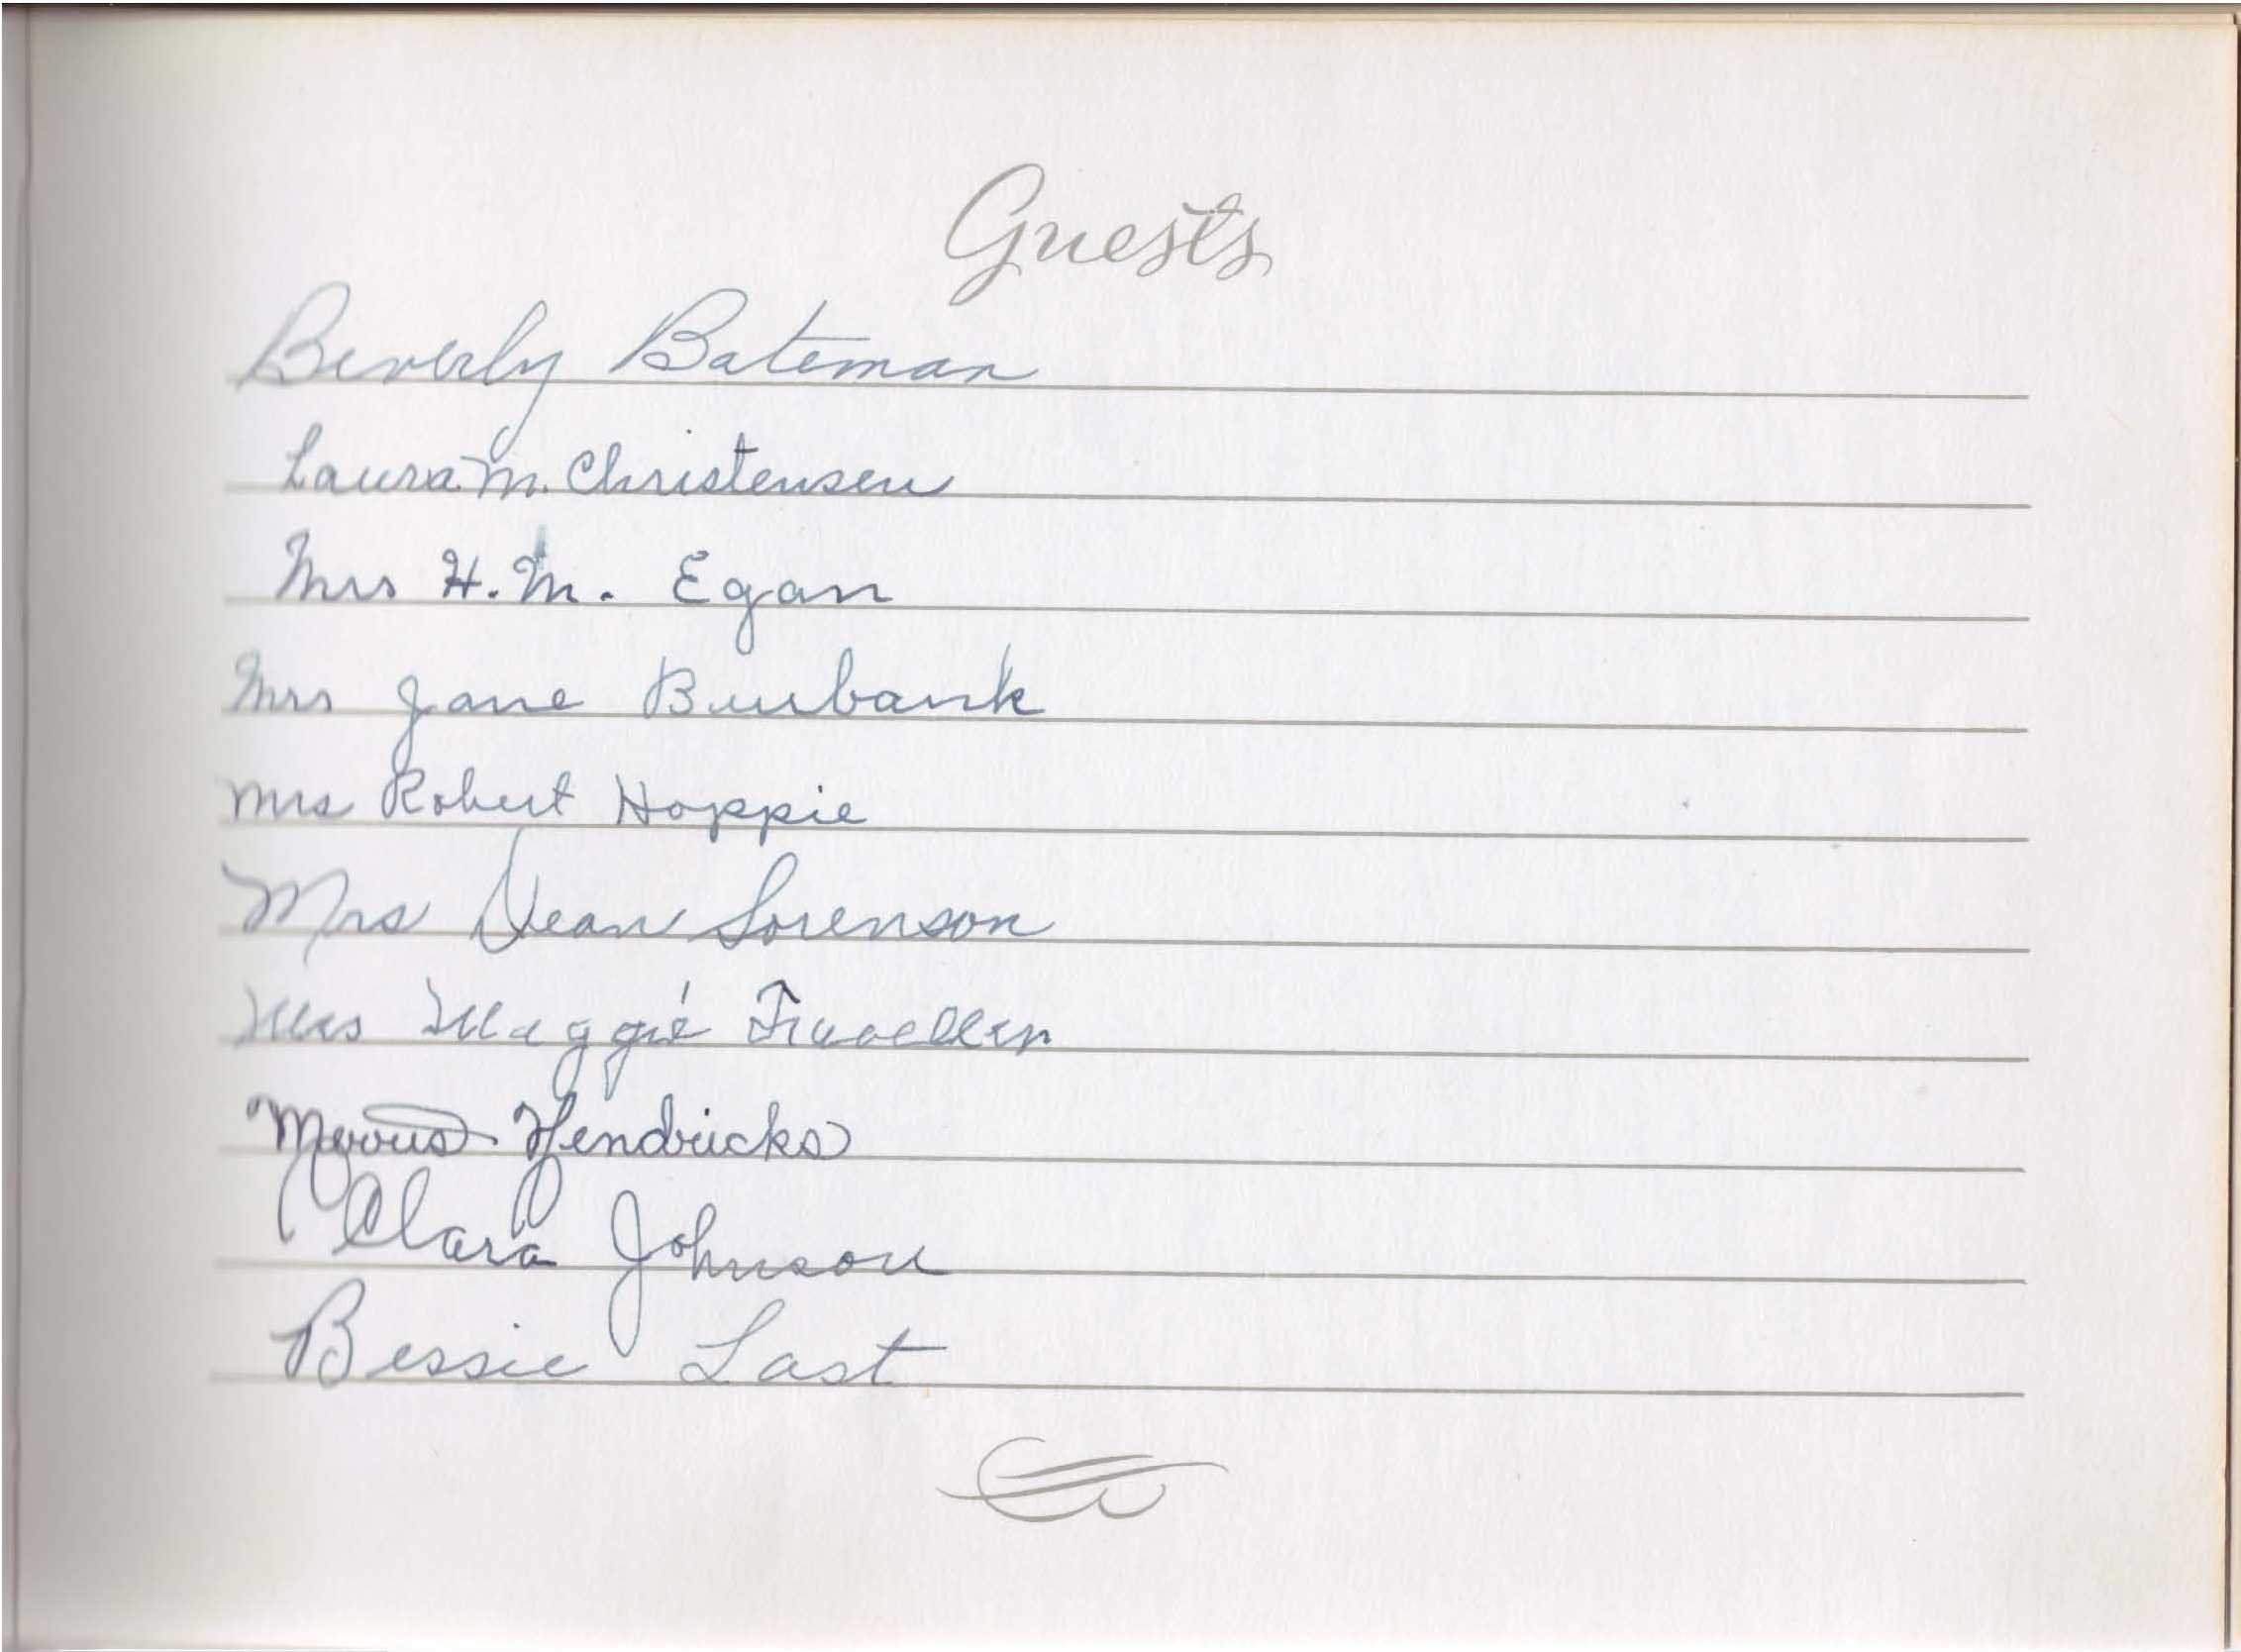 Guests
Beverly Bateman
Laura M. Christensen
Mrs H. M. Egan
Mrs Jane Burbank
Mrs Robert Hoppie
Mrs Dean Sorenson
Mrs Maggie Traveller
Hendricks
Clara Johnson
Bessie Last